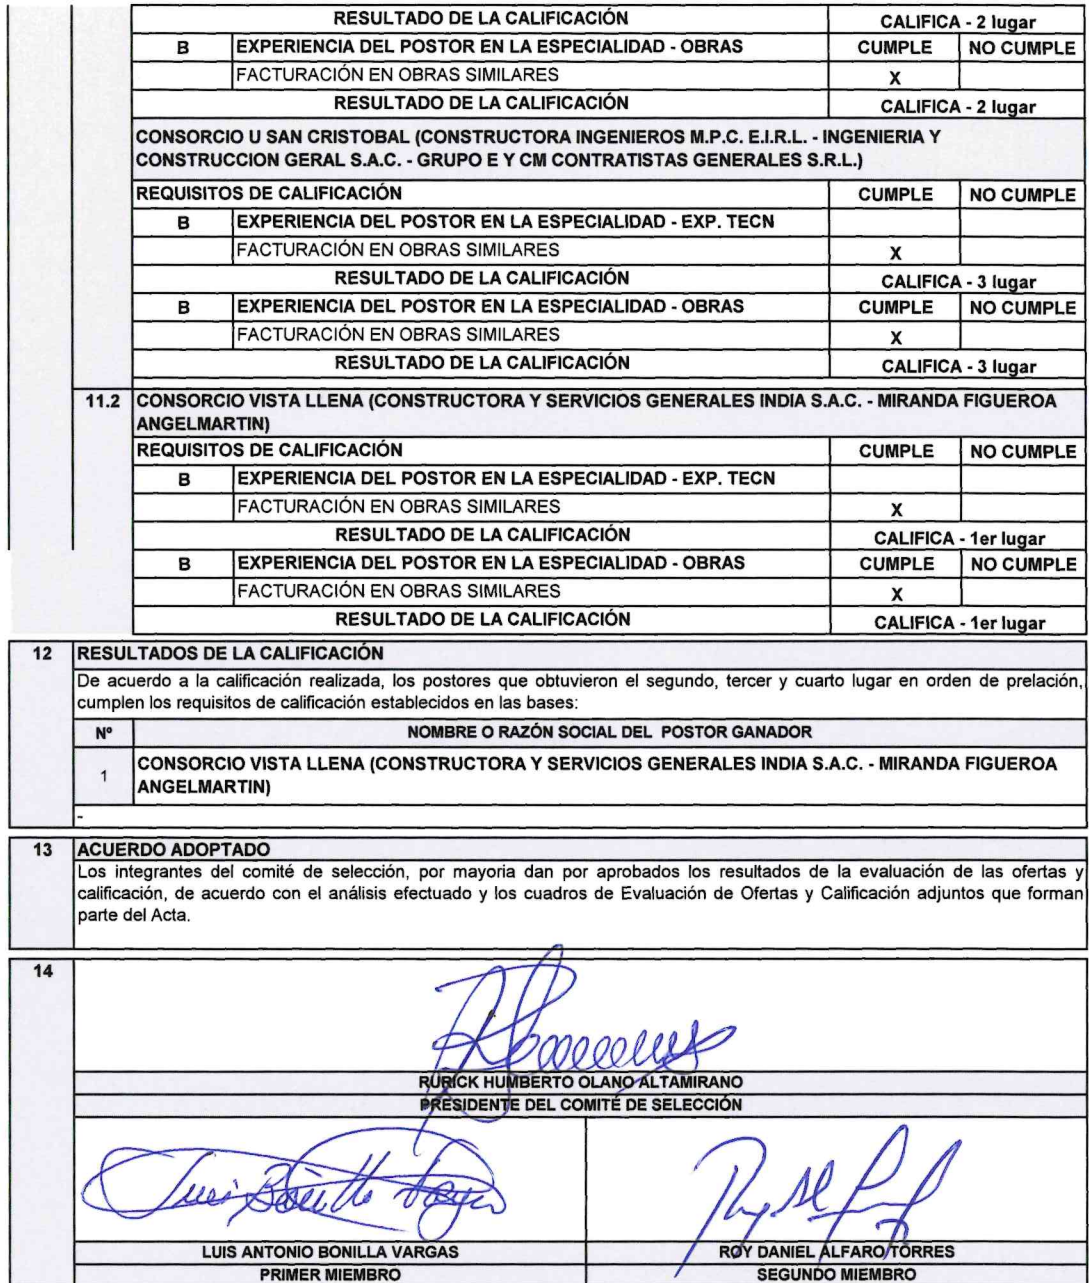 RESULTADO DE LA CALIFICACIÓN CALIFICA - 2 lugar
B EXPERIENCIA DEL POSTOR EN LA ESPECIALIDAD - OBRAS CUMPLE NO CUMPLE
FACTURACIÓN EN OBRAS SIMILARES X
RESULTADO DE LA CALIFICACIÓN CALIFICA - 2 lugar
CONSORCIO U SAN CRISTOBAL (CONSTRUCTORA INGENIEROS M.P.C. E.I.R.L. - INGENIERIA Y
CONSTRUCCION GERAL S.A.C. - GRUPO E Y CM CONTRATISTAS GENERALES S.R.L.)
REQUISITOS DE CALIFICACIÓN CUMPLE NO CUMPLE
B EXPERIENCIA DEL POSTOR EN LA ESPECIALIDAD - EXP. TECN
FACTURACIÓN EN OBRAS SIMILARES X
RESULTADO DE LA CALIFICACIÓN CALIFICA - 3 lugar
B EXPERIENCIA DEL POSTOR EN LA ESPECIALIDAD - OBRAS CUMPLE NO CUMPLE
FACTURACIÓN EN OBRAS SIMILARES X
RESULTADO DE LA CALIFICACIÓN CALIFICA - 3 lugar
11.2 CONSORCIO VISTA LLENA (CONSTRUCTORA Y SERVICIOS GENERALES INDIA S.A.C. - MIRANDA FIGUEROA
ANGELMARTIN)
REQUISITOS DE CALIFICACIÓN CUMPLE NO CUMPLE
B EXPERIENCIA DEL POSTOR EN LA ESPECIALIDAD - EXP. TECN
FACTURACIÓN EN OBRAS SIMILARES X
RESULTADO DE LA CALIFICACIÓN CALIFICA - 1er lugar
B EXPERIENCIA DEL POSTOR EN LA ESPECIALIDAD - OBRAS CUMPLE NO CUMPLE
FACTURACIÓN EN OBRAS SIMILARES X
RESULTADO DE LA CALIFICACIÓN CALIFICA - 1er lugar
12 RESULTADOS DE LA CALIFICACIÓN
De acuerdo a la calificación realizada, los postores que obtuvieron el segundo, tercer y cuarto lugar en orden de prelación,
cumplen los requisitos de calificación establecidos en las bases:
Nº NOMBRE O RAZÓN SOCIAL DEL POSTOR GANADOR
1 CONSORCIO VISTA LLENA (CONSTRUCTORA Y SERVICIOS GENERALES INDIA S.A.C. - MIRANDA FIGUEROA
ANGELMARTIN)
-
13 ACUERDO ADOPTADO
Los integrantes del comité de selección, por mayoria dan por aprobados los resultados de la evaluación de las ofertas y
calificación, de acuerdo con el análisis efectuado y los cuadros de Evaluación de Ofertas y Calificación adjuntos que forman
parte del Acta.
14
RURICK HUMBERTO OLANO ALTAMIRANO
PRESIDENTE DEL COMITÉ DE SELECCIÓN
LUIS ANTONIO BONILLA VARGAS ROY DANIEL ALFARO TORRES
PRIMER MIEMBRO SEGUNDO MIEMBRO